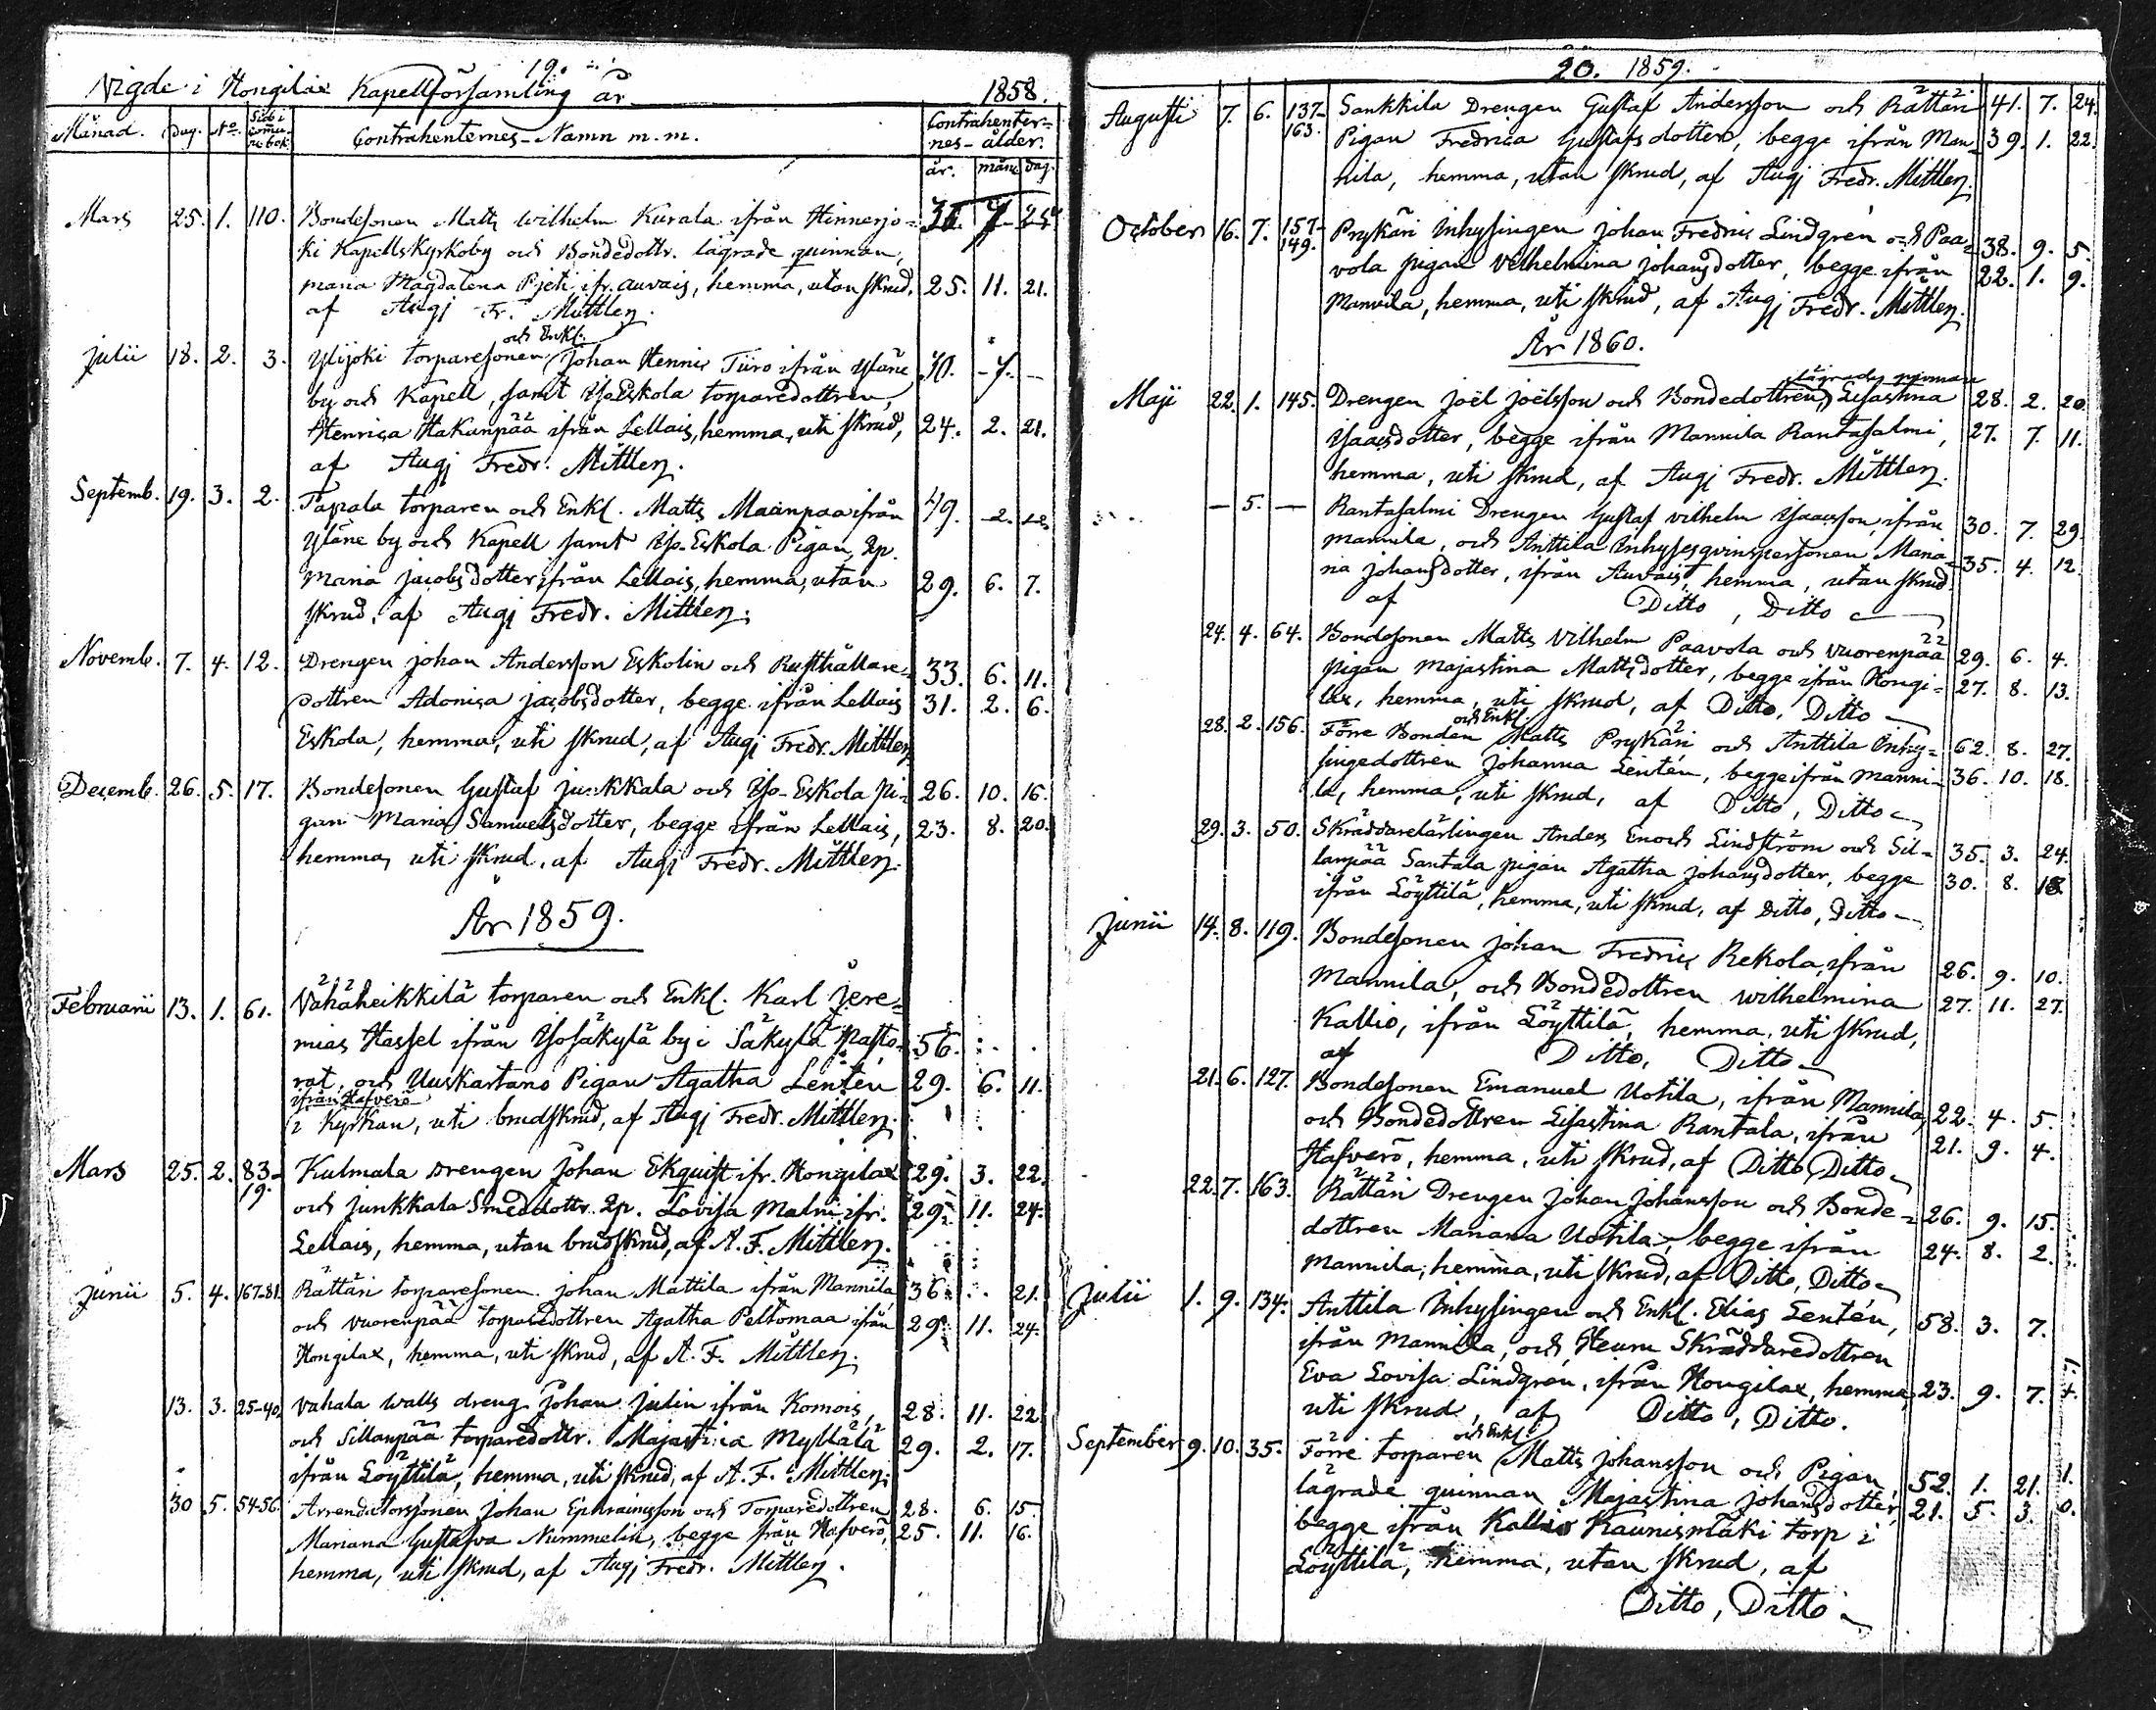 19.
Vigde i Hongilax Kapellförsamling år 1858.
Månad. Dag. No. Sid i Comu- ni-bok Contrahenternes-Namn m.m. Contrahenter- nes-ålder.
år. mån. dag.
Mars 25. 1. 110. Bondesonen Matts Wilhelm Kurala ifrån Hinnerjo-
ki Kapells Kyrkoby och Bondedottr. lägrade quinnan,
Maria Magdalena Pjeti ifr. Auvais, hemma, utan skrud, 25. 11. 21.
af Augj Fr. Mittler.
och Enkl.
Julii 18. 2. 3. Ylijoki torparesonen Johan Henric Tiiro ifrån Yläne 40. - 7. -
by och Kapell, samt Iso-Eskola torparedottren,
Henrica Hakanpää ifrån Lellais, hemma, uti skrud, 24. 2. 21.
af Augj Fredr. Mittler.
Septemb. 19. 3. 2. Tapala torparen och Enkl. Matts Maanpaa ifrån 49. 2.
Yläne by och Kapell samt Iso-Eskola Pigan, Qp.
Maria Jacobsdotter ifrån Lellais, hemma, utan 29. 6. 7.
skrud, af Augj Fredr. Mittler.
Novemb. 7. 4. 12. Drengen Johan Andersson Eskolin och Rusthållare- 33. 6. 11.
dottren Adonica Jacobsdotter, begge ifrån Lellais 31. 2. 6.
Eskola, hemma, uti skrud, af Augj Fredr. Mittler
Decemb. 26. 5. 17. Bondesonen Gustaf Junkkala och Iso-Eskola pi- 26. 10. 16.
gan Maria Samuelsdotter, begge ifrån Lellais, 23. 8. 20.
hemma, uti skrud, af Augj Fredr. Mittler.
År 1859.
Februarii 13. 1. 61. Vähäheikkilä torparen och Enkl. Karl Jere-
mias Hassel ifrån Isosäkylä by i Säkylä Pasto- 56.
rat, och Uuskartano Pigan Agatha Lentén 29. 6. 11.
ifrån Hafverö
i Kyrkan, uti brudskrud, af Augj Fredr. Mittler.
Mars 25. 2. 83- Kulmala Drengen Johan Ekquist ifr. Hongilax 29. 3. 22.
19. och Junkkala Smeddottr. Qp. Lovisa Malm ifr. 29. 11. 24.
Lellais, hemma, utan brudskrud, af A. F. Mittler.
Junii 5. 4. 167-81. Rättäri torparesonen Johan Mattila ifrån Mannila 36. 21.
och Vuorenpää torparedottren Agatha Peltomaa ifrån 29. 11. 24.
Hongilax, hemma, uti skrud, af A. F. Mittler.
13. 3. 25-40. Vahala walls dreng Johan Julin ifrån Komois, 28. 11. 22
och Sillanpää torparedottr. Majastina Myllälä 29. 2. 17.
ifrån Löyttilä, hemma, uti skrud, af A. F. Mittler.
30 5. 54-56. Arrendatorsonen Johan Ephraimsson och Torparedottren 28. 6. 15
Mariana Gustafva Nummelin, begge från Hafverö, 25. 11. 16.
hemma, uti skrud, af Augj Fredr. Mittler.
20. 1859.
Augusti 7. 6. 137- Sankkila Drengen Gustaf Andersson och Rättäri 41. 7. 24.
163. Pigan Fredrica Gustafsdotter, begge ifrån Man- 39. 1. 22.
nila, hemma, utan skrud, af Augj Fredr. Mittler.
October 16. 7. 157- Prykäri Inhysingen Johan Fredric Lindgrén och Paa- 38. 9. 5.
149. vola pigan Vilhelmina Johansdotter, begge ifrån 22. 1. 9.
Mannila, hemma, uti skrud, af Augj Fredr. Mittler.
År 1860.
lägrade quinnan
Maji 22. 1. 145. Drengen Joël Joëlsson och Bondedottren, Lisastina 28. 2. 20.
Isaacsdotter, begge ifrån Mannila Rantasalmi, 27. 7. 11.
hemma, uti skrud, af Augj Fredr. Mittler.
— 5. — Rantasalmi Drengen Gustaf Vilhelm Isaacsson, ifrån 30. 7. 29
Mannila, och Anttila Inhysesqvinspersonen Maria- 35. 4. 12.
na Johansdotter, ifrån Auvais, hemma, utan skrud.
af Ditto, Ditto
24. 4. 64. Bondesonen Matts Vilhelm Paavola och Vuorenpää 29. 6. 4.
pigan Majastina Mattsdotter, begge ifrån Hongi- 27. 8. 13.
lax, hemma, uti skrud, af Ditto, Ditto
och Enkl.
28. 2. 156. Förre Bonden Matts Prykäri och Anttila Inhy- 62. 8. 27.
singedottren Johanna Lentén, begge ifrån Manni- 36. 10. 18.
la, hemma, uti skrud, af Ditto, Ditto
29. 3. 50. Skräddarelärlingen Anders Enoch Lindström och Sil- 35. 3. 24.
lanpää Santala pigan Agatha Johansdotter, begge 30. 8. 18.
ifrån Löyttilä, hemma, uti skrud, af Ditto, Ditto
Junii 14. 8. 119. Bondesonen Johan Fredric Rekola, ifrån 26. 9. 10.
Mannila, och Bondedottren Wilhelmina 27. 11. 27.
Kallio, ifrån Löyttilä, hemma, uti skrud,
af Ditto, Ditto
21. 6. 127. Bondesonen Emanuel Uotila, ifrån Mannila, 22. 4. 5.
och Bondedottren Lisastina Rantala, ifrån 21. 9. 4.
Hafverö, hemma, uti skrud, af Ditto, Ditto
22. 7. 163. Rättäri Drengen Johan Johansson och Bonde- 26. 9. 15.
dottren Mariana Uotila, begge ifrån 24. 8. 2.
Mannila, hemma, uti skrud, af Ditto, Ditto
Julii 1. 9. 134. Anttila Inhysingen och Enkl. Elias Lentén, 58. 3. 7.
ifrån Mannila, och Heurn Skräddaredottren
Eva Lovisa Lindgrén, ifrån Hongilax, hemma, 23. 9. 7.
uti skrud, af Ditto, Ditto.
och Enkl.
September 9. 10. 35. Förre torparen Matts Johansson och Pigan, 52. 1. 21.
lägrade quinnan Majastina Johansdotter, 21. 5. 3.
begge ifrån Kallio Kaunismäki torp i
Löyttilä, hemma, utan skrud, af
Ditto, Ditto